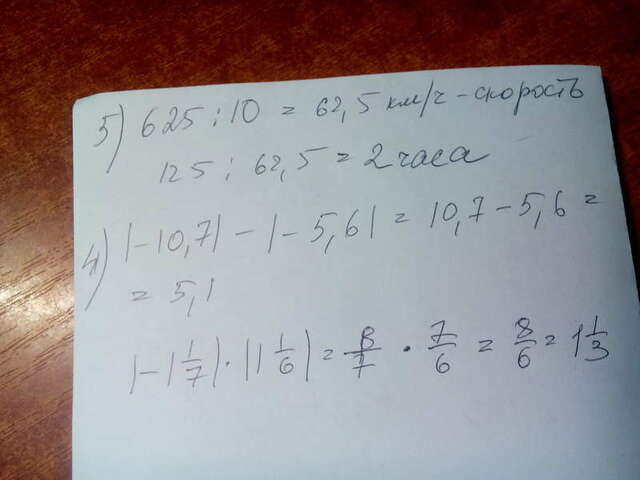 5) 625 : 10 = 62,5 км/ч - скорость
125 : 62,5 = 2 часа
4) |-10,7| - |-5,6| = 10,7 - 5,6 =
= 5,1
|-1 1/7| · |1 1/6| = 8/7 · 7/6 = 8/6 = 1 1/3